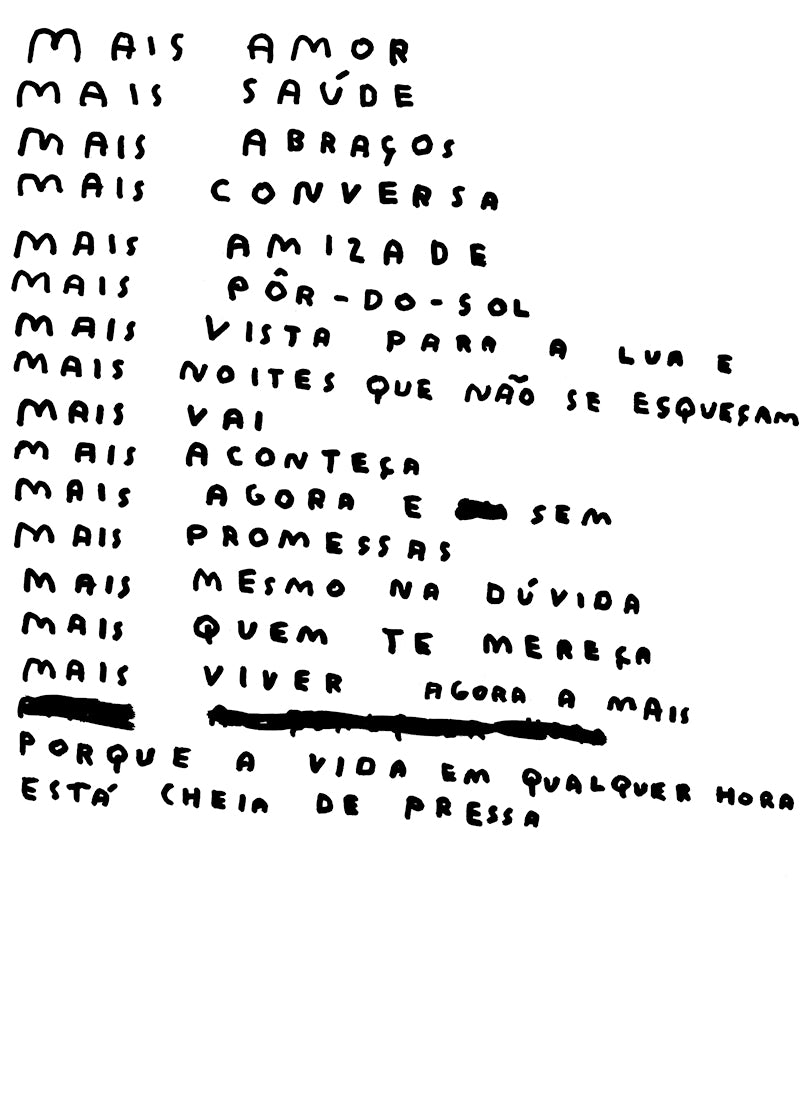 MAIS AMOR
MAIS SAÚDE
MAIS ABRAÇOS
MAIS CONVERSA
MAIS AMIZADE
MAIS PÔR-DO-SOL
MAIS VISTA PARA A LUA E
MAIS NOITES QUE NÃO SE ESQUEÇAM
MAIS VAI
MAIS ACONTEÇA
MAIS AGORA E SEM
MAIS PROMESSAS
MAIS MESMO NA DÚVIDA
MAIS QUEM TE MEREÇA
MAIS VIVER AGORA A MAIS
PORQUE A VIDA EM QUALQUER HORA
ESTÁ CHEIA DE PRESSA